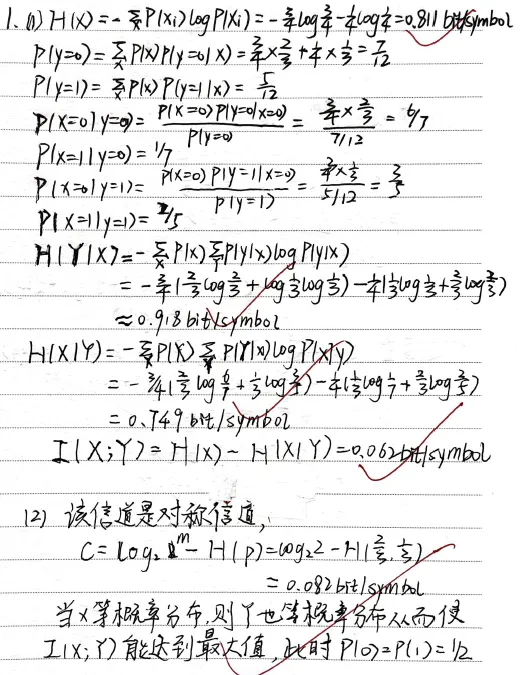 1. (1) H(X) = - Σ_x P(x_i) log P(x_i) = - 3/4 log 3/4 - 1/4 log 1/4 = 0.811 bit/symbol
P(y=0) = Σ_x P(x) P(y=0|x) = 3/4 × 2/3 + 1/4 × 1/3 = 7/12
P(y=1) = Σ_x P(x) P(y=1|x) = 5/12
P(x=0|y=0) = P(x=0)P(y=0|x=0) / P(y=0) = 3/4 × 2/3 / 7/12 = 6/7
P(x=1|y=0) = 1/7
P(x=0|y=1) = P(x=0)P(y=1|x=0) / P(y=1) = 3/4 × 1/3 / 5/12 = 3/5
P(x=1|y=1) = 2/5
H(Y|X) = - Σ_x P(x) Σ_y P(y|x) log P(y|x)
= - 3/4 (2/3 log 2/3 + log 1/3 log 1/3) - 1/4 (1/3 log 1/3 + 2/3 log 2/3)
≈ 0.918 bit/symbol
H(X|Y) = - Σ_x P(x) Σ_y P(y|x) log P(x|y)
= - 3/4 (2/3 log 6/7 + 1/3 log 3/5) - 1/4 (1/3 log 1/7 + 2/3 log 2/5)
= 0.749 bit/symbol
I(X;Y) = H(X) - H(X|Y) = 0.062 bit/symbol
(2) 该信道是对称信道,
C = log₂ m - H(p) = log₂2 - H(2/3, 1/3)
= 0.082 bit/symbol
当X等概率分布,则Y也等概率分布从而使
I(X;Y)能达到最大值,此时P(0)=P(1)=1/2